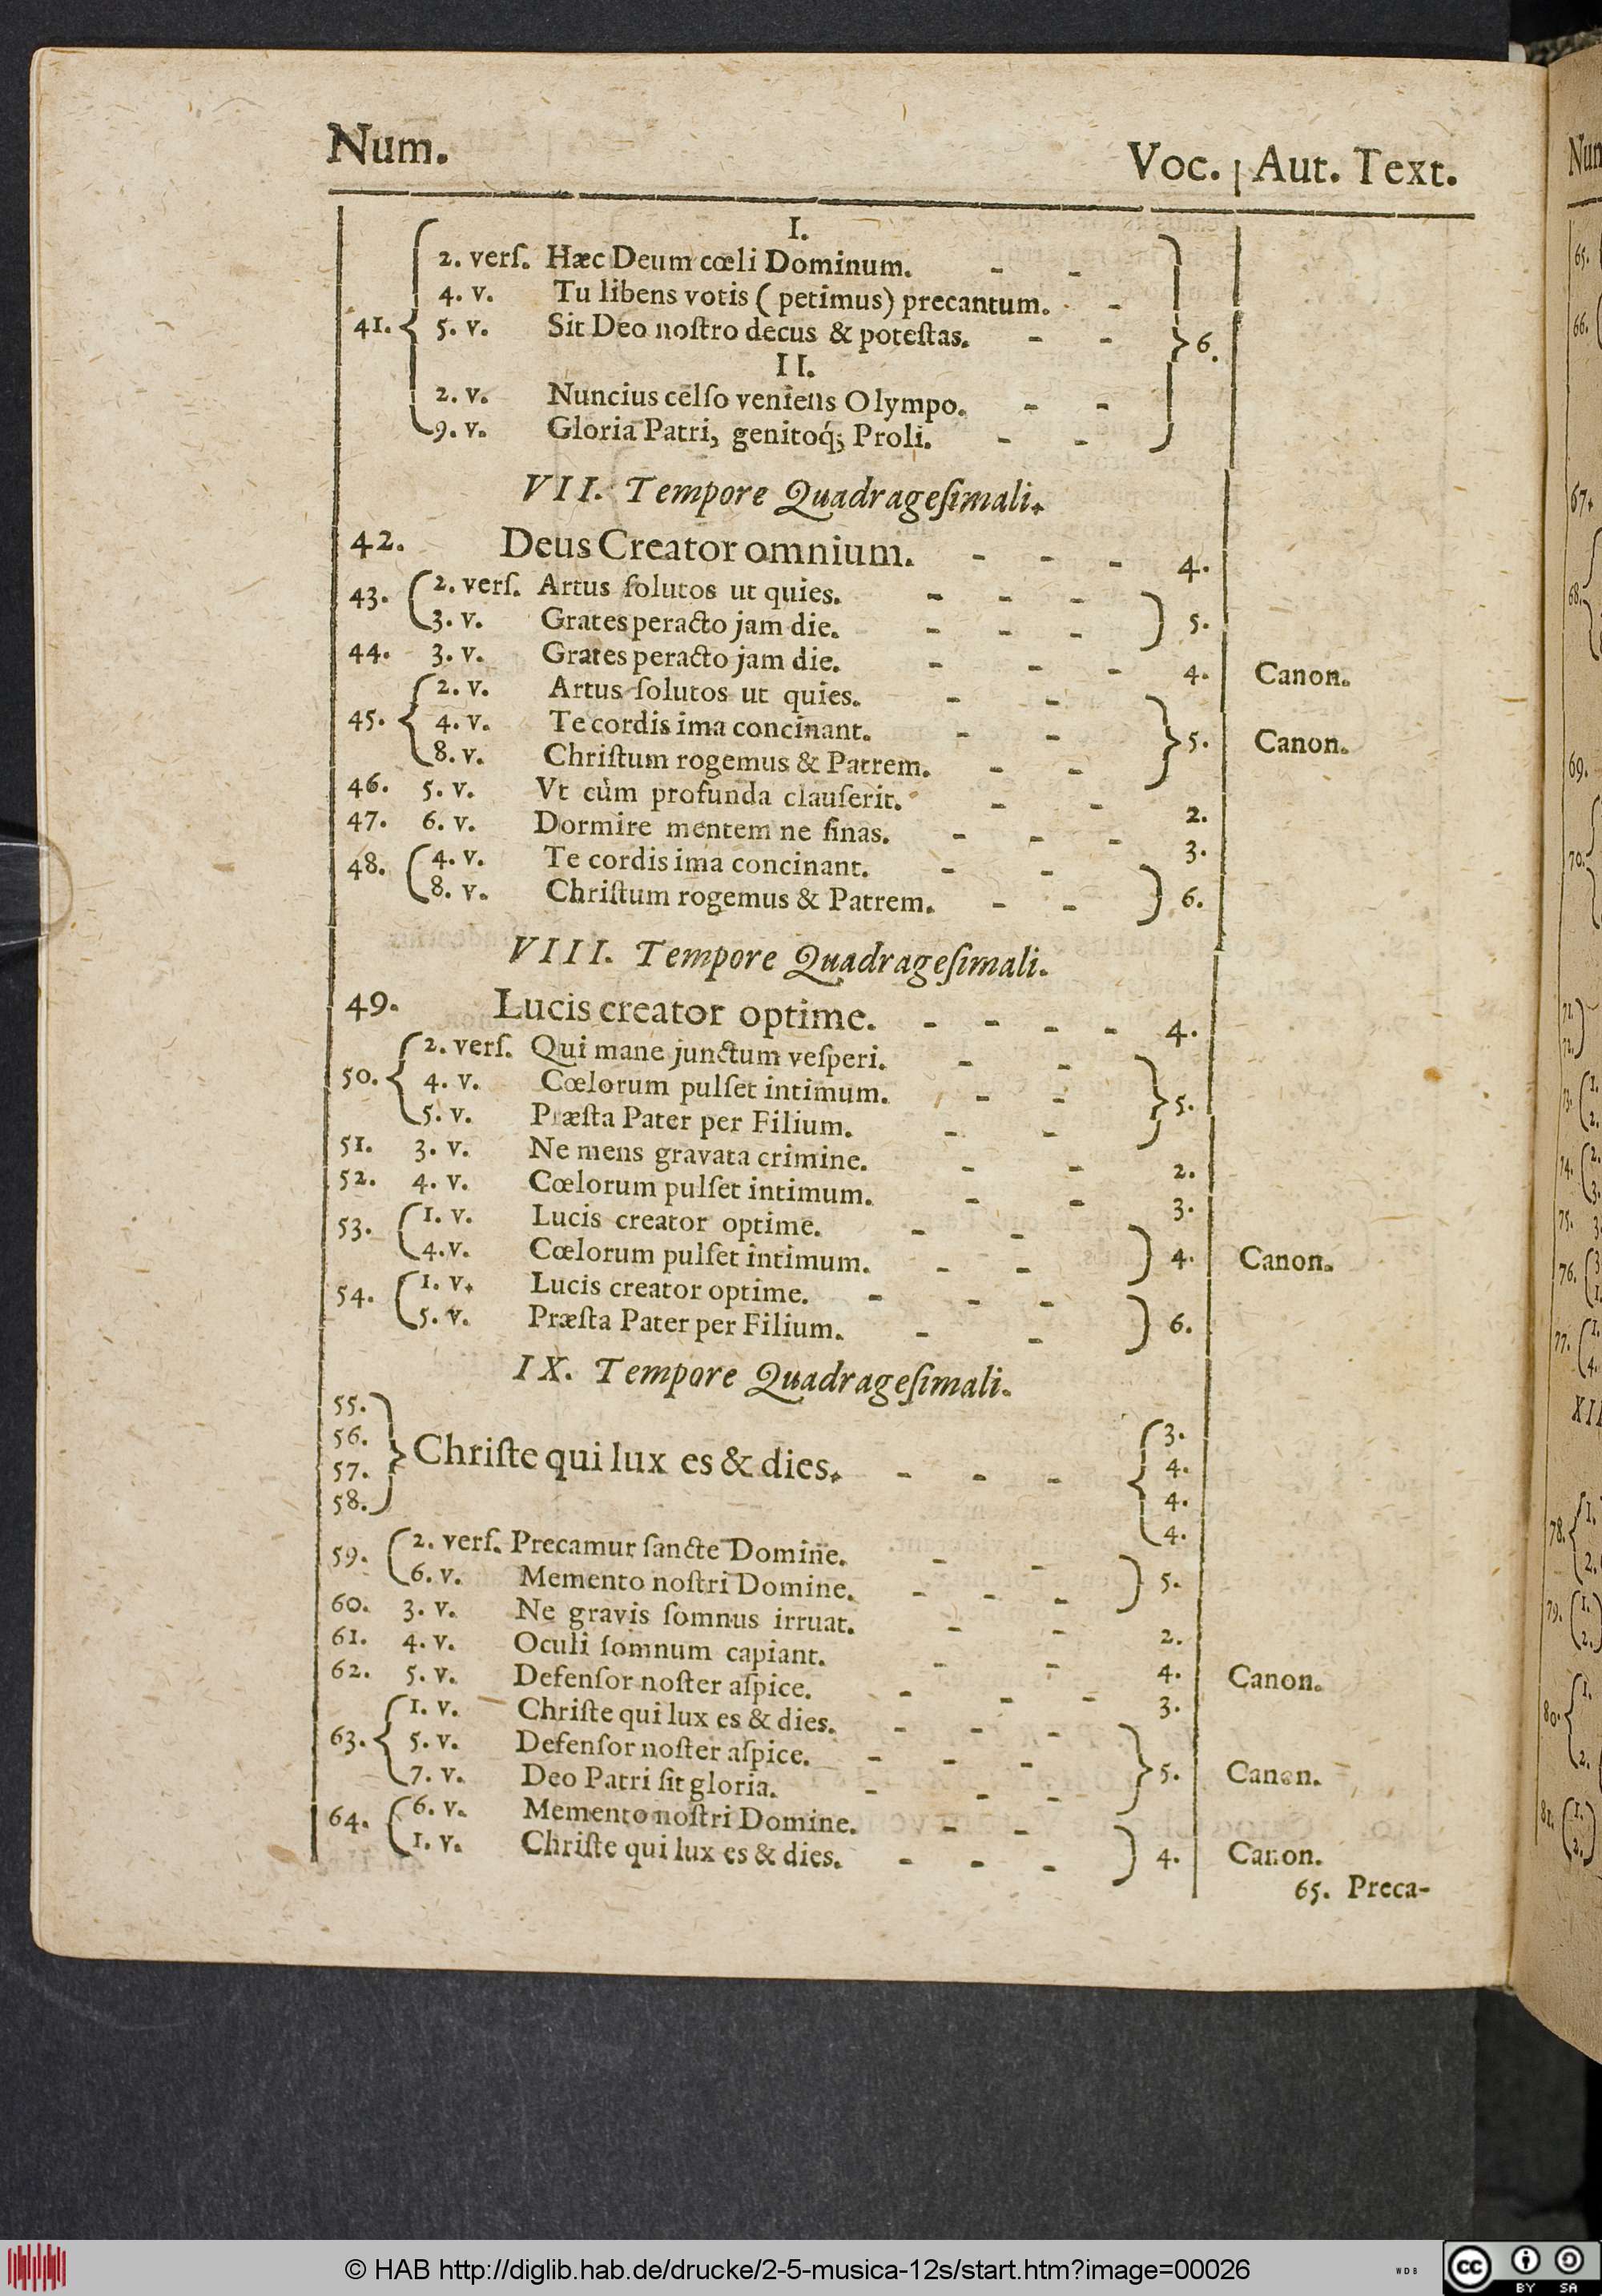 Num. Voc. | Aut. Text.
I.
2. verſ. Hæc Deum cœli Dominum. - -
4. v. Tu libens votis ( petimus) precantum. -
41. 5. v. Sit Deo noſtro decus & poteſtas. - - 6.
II.
2. v. Nuncius celſo veniens Olympo. - -
9. v. Gloria Patri, genitoq́; Proli. - -
VII. Tempore Quadrageſimali.
42. Deus Creator omnium. - - - 4.
43. 2. verſ. Artus ſolutos ut quies. - - -
3. v. Grates peracto jam die. - - - 5.
44. 3. v. Grates peracto jam die. - - - 4. Canon.
2. v. Artus ſolutos ut quies. - -
45. 4. v. Te cordis ima concinant. - - 5. Canon.
8. v. Chriſtum rogemus & Patrem. - -
46. 5. v. Vt cùm profunda clauſerit. - - 2.
47. 6. v. Dormire mentem ne ſinas. - - - 3.
48. 4. v. Te cordis ima concinant. - -
8. v. Chriſtum rogemus & Patrem. - - 6.
VIII. Tempore Quadrageſimali.
49. Lucis creator optime. - - - - 4.
2. verſ. Qui mane junctum veſperi. - -
50. 4. v. Cœlorum pulſet intimum. - - 5.
5. v. Præſta Pater per Filium. - -
51. 3. v. Ne mens gravata crimine. - - 2.
52. 4. v. Cœlorum pulſet intimum. - - 3.
53. 1. v. Lucis creator optime. - -
4. v. Cœlorum pulſet intimum. - - 4. Canon.
54. 1. v. Lucis creator optime. - - -
5. v. Præſta Pater per Filium. - - 6.
IX. Tempore Quadrageſimali.
55. 3.
56. 4.
Chriſte qui lux es & dies. - - -
57. 4.
58. 4.
59. 2. verſ. Precamur ſancte Domine. - -
6. v. Memento noſtri Domine. - - - 5.
60. 3. v. Ne gravis ſomnus irruat. - - 2.
61. 4. v. Oculi ſomnum capiant. - - 4. Canon.
62. 5. v. Defenſor noſter aſpice. - - - 3.
1. v. Chriſte qui lux es & dies. - - -
63. 5. v. Defenſor noſter aſpice. - - - 5. Canon.
7. v. Deo Patri ſit gloria. - - -
64. 6. v. Memento noſtri Domine. - -
1. v. Chriſte qui lux es & dies. - - - 4. Canon.
65. Preca-
Num
65.
66.
67.
68.
69.
70.
71.
72.
74.
75.
76.
77.
XII
78.
79.
80.
81.
© HAB http://diglib.hab.de/drucke/2-5-musica-12s/start.htm?image=00026
WDB
cc
BY SA